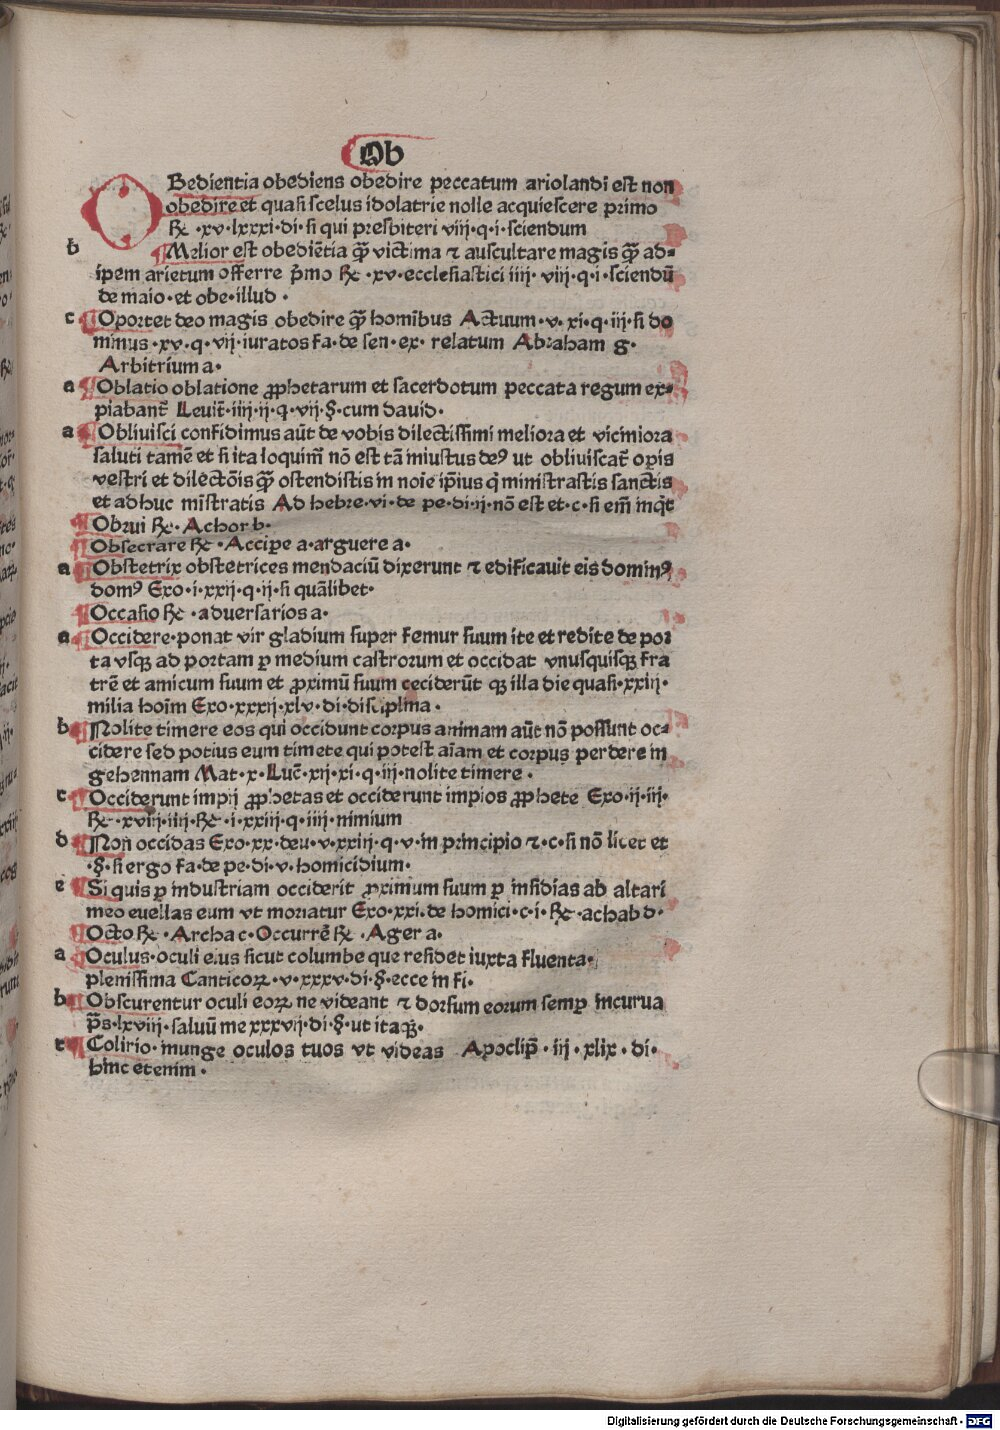 Ob
OBedientia obediens obedire peccatum ariolandi est non
obedire et quasi scelus idolatrie nolle acquiescere primo
Rͤ ·xv·lxxxi·di·si qui presbiteri viij·q·i·sciendum
b Melior est obediẽtia q̃ victima ⁊ auscultare magis q̃ ad⸗
ipem arietum offerre p̃mo Rͤ ·xv·ecclesiastici iiij· viij·q·i·sciendũ
de maio·et obe·illud·
c Oportet deo magis obedire q̃ hominbus Actuum·v·xi·q·iij·si do
minus·xv·q·vij·iuratos fa·de sen·ex· relatum Abraham g·
Arbitrium a·
a Oblatio oblatione ꝓphetarum et sacerdotum peccata regum ex⸗
piabant̃ Leuit̃·iiij·ij·q·vij·§·cum dauid·
a Obliuisci confidimus aũt de vobis dilectissimi meliora et viciniora
saluti tamẽ et si ita loquim̃ nõ est tã iniustus deꝰ ut obliuiscat̃ oꝑis
vestri et dilectõis q̃ ostendistis in noĩe ip̃ius q̇ ministrastis sanctis
et adhuc mĩstratis Ad hebre·vi·de pe·di·ij·nõ est et·c·si em̃ inq̇t
Obrui Rͤ· Achor b·
Obsecrare Rͤ·Accipe a·arguere a·
a Obstetrix obstetrices mendaciũ dixerunt ⁊ edificauit eis dominꝰ
domꝰ Exo·i·xxij·q·ij·si quãlibet·
Occasio Rͤ·aduersarios a·
a Occidere·ponat vir gladium super femur suum ite et redite de por
ta vsqꝫ ad portam ꝑ medium castrorum et occidat vnusquisqꝫ fra
trẽ et amicum suum et ꝓximũ suum ceciderũt qꝫ illa die quasi·xxiij·
milia hoĩm Exo·xxxij·xlv·di·disciplina·
b Nolite timere eos qui occidunt corpus animam aũt nõ possunt oc⸗
cidere sed potius eum timete qui potest aĩam et corpus perdere in
gehennam Mat·x·Luc̃·xij·xi·q·iij·nolite timere·
c Occiderunt impij ꝓphetas et occiderunt impios ꝓphete Exo·ij·iij·
Rͤ·xviij·iiij·Rͤ·i·xxiij·q·iiij·nimium
d Non occidas Exo·xx·deu·v·xxiij·q·v·in principio ⁊·c·si nõ licet et
·§·si ergo fa·de pe·di·v·homicidium·
e Si quis ꝑ industriam occiderit ꝓximum suum ꝑ insidias ab altari
meo euellas eum vt moriatur Exo·xxi·de homici·c·i·Rͤ·achab d·
Octo Rͤ·Archa c·Occurrẽ Rͤ·Ager a·
a Oculus·oculi eius sicut columbe que resident iuxta fluenta·
plenissima Canticoꝝ·v·xxxv·di·§·ecce in fi·
b Obscurentur oculi eoꝝ ne videant ⁊ dorsum eorum semꝑ incurua
p̃s·lxviij·saluũ me xxxvij·di·§·ut itaqꝫ·
c Colirio·inunge oculos tuos vt videas Apoclip̃·iij·xlix·di·
hinc etenim·
Digitalisierung gefördert durch die Deutsche Forschungsgemeinschaft - DFG